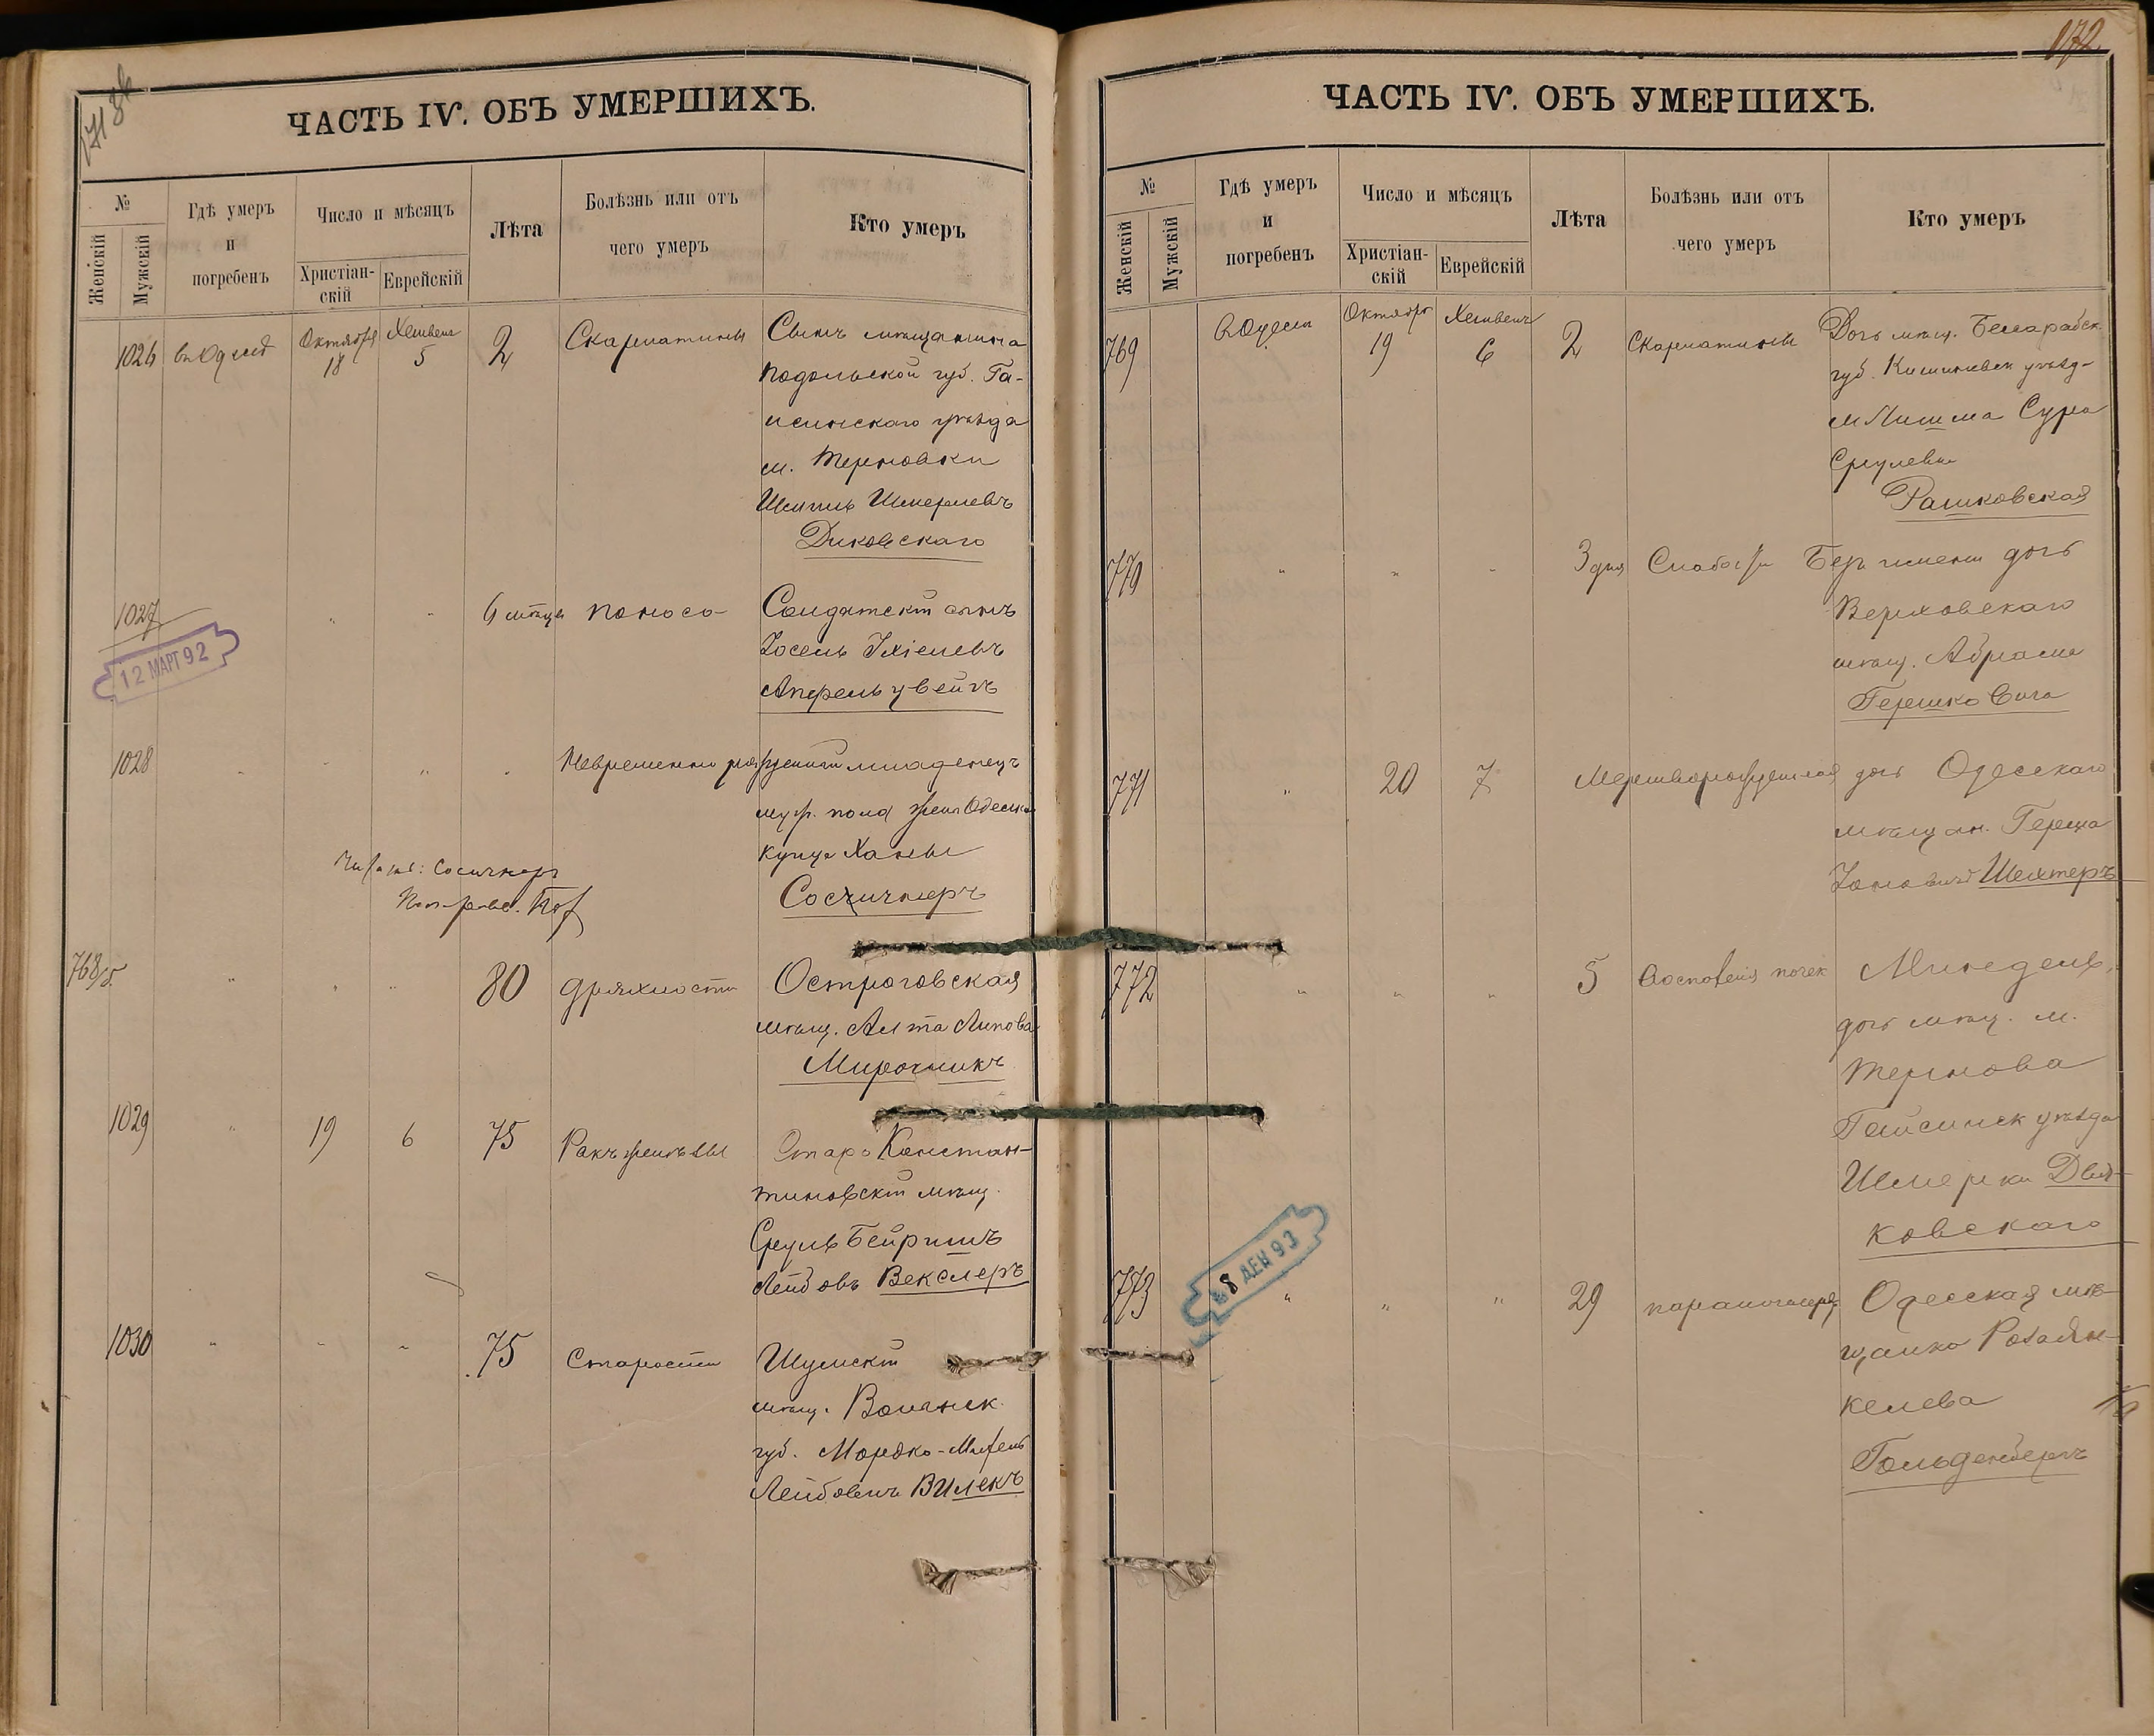 171 об
ЧАСТЬ IV. ОБЪ УМЕРШИХЪ.
№
Женскій
Мужскій
Гдѣ умеръ
и
погребенъ
Число и мѣсяцъ
Христіан-
скій
Еврейскій
Лѣта
Болѣзнь или отъ
чего умеръ
Кто умеръ
1026 въ Одессѣ Октября 18 Хешвенъ 5 2 Скарлатины Сынъ мѣщанина
Подольской губ. Га-
исинскаго уѣзда
м. Терновки
Шмиль Шмерлевъ
Диковскаго
1027 " " 6 мѣсяц. поноса Солдатскій сынъ
Іосель Іхіелевъ
Апфельцвейгъ
12 МАРТ 92
1028 " " " " Невременно рожденный младенецъ
муж. пола жены Одесск.
купца Ханы
Сосичнеръ
Читать: Сосичнеръ
768 " " " 80 дряхлости Остроговская
мѣщ. Алта Липова
Мирочникъ
1029 " 19 6 75 Ракъ печени Старо Констан-
тиновскій мѣщ.
Сруль Бейришъ
Лейбовъ Векслеръ
1030 " " " 75 Старости Шумскій
мѣщ. Волынск.
губ. Мордко-Михель
Лейбовичъ Вилекъ
172
ЧАСТЬ IV. ОБЪ УМЕРШИХЪ.
№
Женскій
Мужскій
Гдѣ умеръ
и
погребенъ
Число и мѣсяцъ
Христіан-
скій
Еврейскій
Лѣта
Болѣзнь или отъ
чего умеръ
Кто умеръ
769 в Одессѣ Октября 19 Хешвенъ 6 2 Скарлатины Дочь мѣщ. Бессарабск.
губ. Кишиневск уѣзд-
Сура
Срулева
Рашковская
770 " " " 3 дня Слабости Безъ имени дочь
Верховскаго
мѣщ. Абрама
Гершковича
771 " 20 7 Мертворожденная дочь Одесскаго
мѣщан. Герша
Іоновича Шехтеръ
772 " " " 5 Воспаленія почек Миндель,
дочь мѣщ. м.
Тернова
Гайсинск уѣзда
Шмерка Дья-
ковскаго
8 ДЕК 93
773 " " " 29 Одесская мѣ-
щанка Роза Ян-
келева
Гольденбергъ